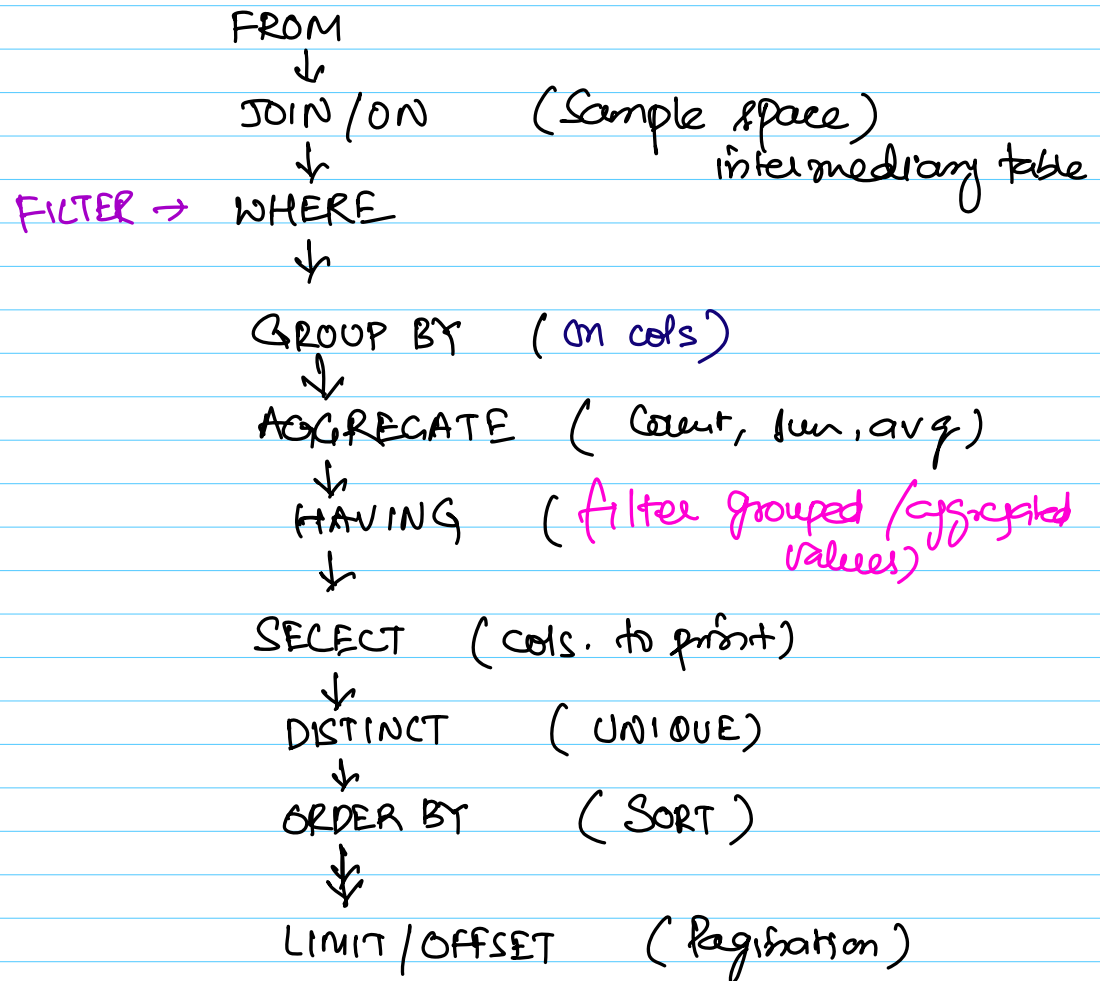 FROM
↓
JOIN / ON (Sample space)
intermediary table
↓
FILTER → WHERE
↓
GROUP BY (on cols)
↓
AGGREGATE (Count, sum, avg)
↓
HAVING (filter grouped / aggregated
values)
↓
SELECT (cols. to print)
↓
DISTINCT (UNIQUE)
↓
ORDER BY (SORT)
↓
LIMIT / OFFSET (Pagination)